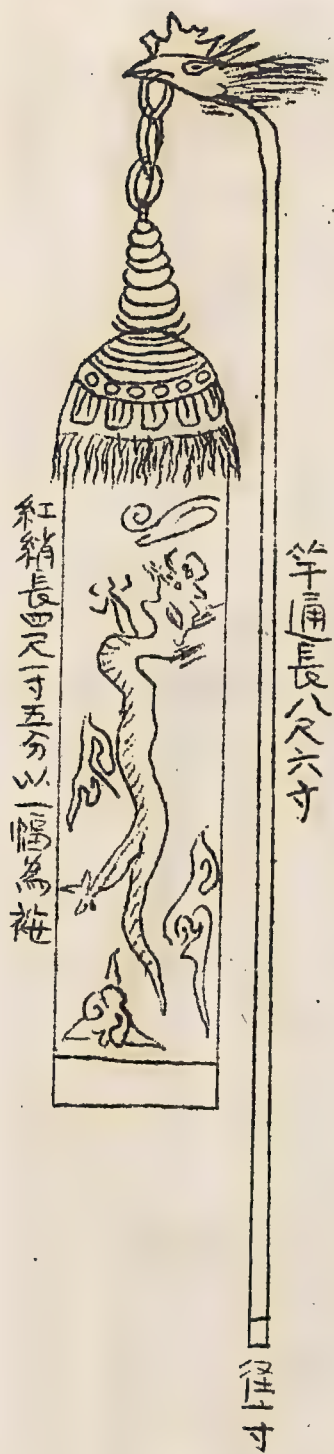 竿通長八尺六寸
径一寸
紅綃長四尺一寸五分以一幅為